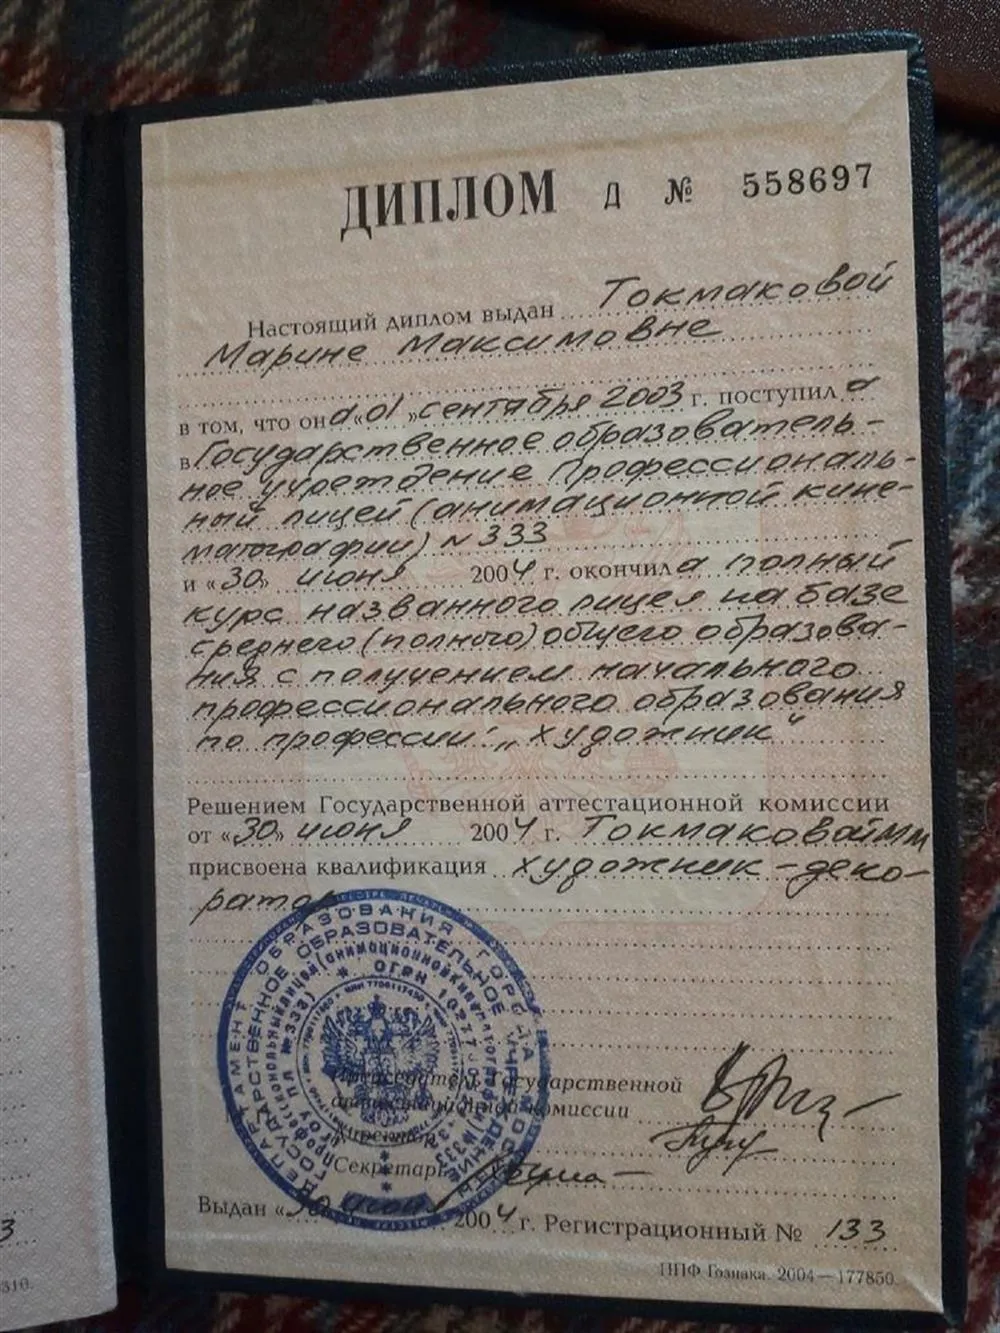 ДИПЛОМ Д № 558697
Настоящий диплом выдан Токмаковой
Марине Максимовне
в том, что она «01» сентября 2003 г. поступила
в Государственное образователь-
ное учреждение Профессиональ-
ный лицей (анимационной кине-
матографии) N 333
и «30» июня 2004 г. окончила полный
курс названного лицея на базе
среднего (полного) общего образова-
ния с получением начального
профессионального образования
по профессии: „художник"
Решением Государственной аттестационной комиссии
от «30» июня 2004 г. Токмаковой М М
присвоена квалификация художник-деко-
ратор
ДЕПАРТАМЕНТ ОБРАЗОВАНИЯ ГОРОДА МОСКВЫ
ГОСУДАРСТВЕННОЕ ОБРАЗОВАТЕЛЬНОЕ УЧРЕЖДЕНИЕ
профессиональный лицей (анимационной кинематографии) № 333
Председатель Государственной
аттестационной комиссии
Директор
Секретарь
Выдан «30» июня 2004 г. Регистрационный № 133
ППФ Гознака. 2004—177850.